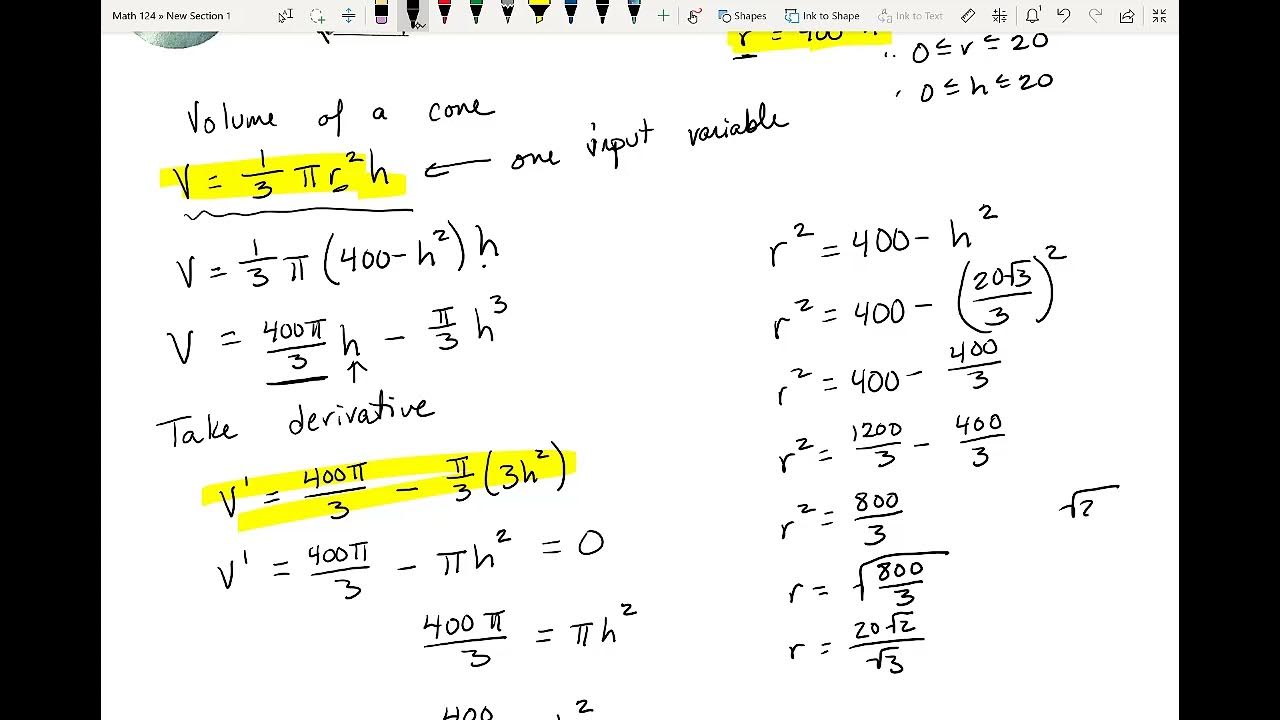 Math 124 » New Section 1
Shapes
Ink to Shape
Ink to Text
0 ≤ r ≤ 20
0 ≤ h ≤ 20
Volume of a cone
V = 1/3 π r² h ← one input variable
V = 1/3 π (400 - h²) h
V = 400π/3 h - π/3 h³
Take derivative
V' = 400π/3 - π/3 (3h²)
V' = 400π/3 - πh² = 0
400π/3 = πh²
r² = 400 - h²
r² = 400 - (20√3/3)²
r² = 400 - 400/3
r² = 1200/3 - 400/3
r² = 800/3
√2
r = √(800/3)
r = 20√2/√3